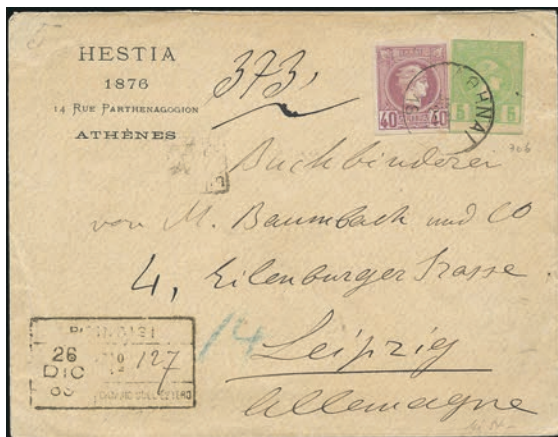 HESTIA
1876
14 RUE PARTHENAGOGION
ATHÈNES
373,
40 40
5 5
ΑΘΗΝΑΙ
306
Buchbinderei
von M. Baumbach und CO
4, Eilenburger Strasse
Leipzig
Allemagne
26
DIC
127
14